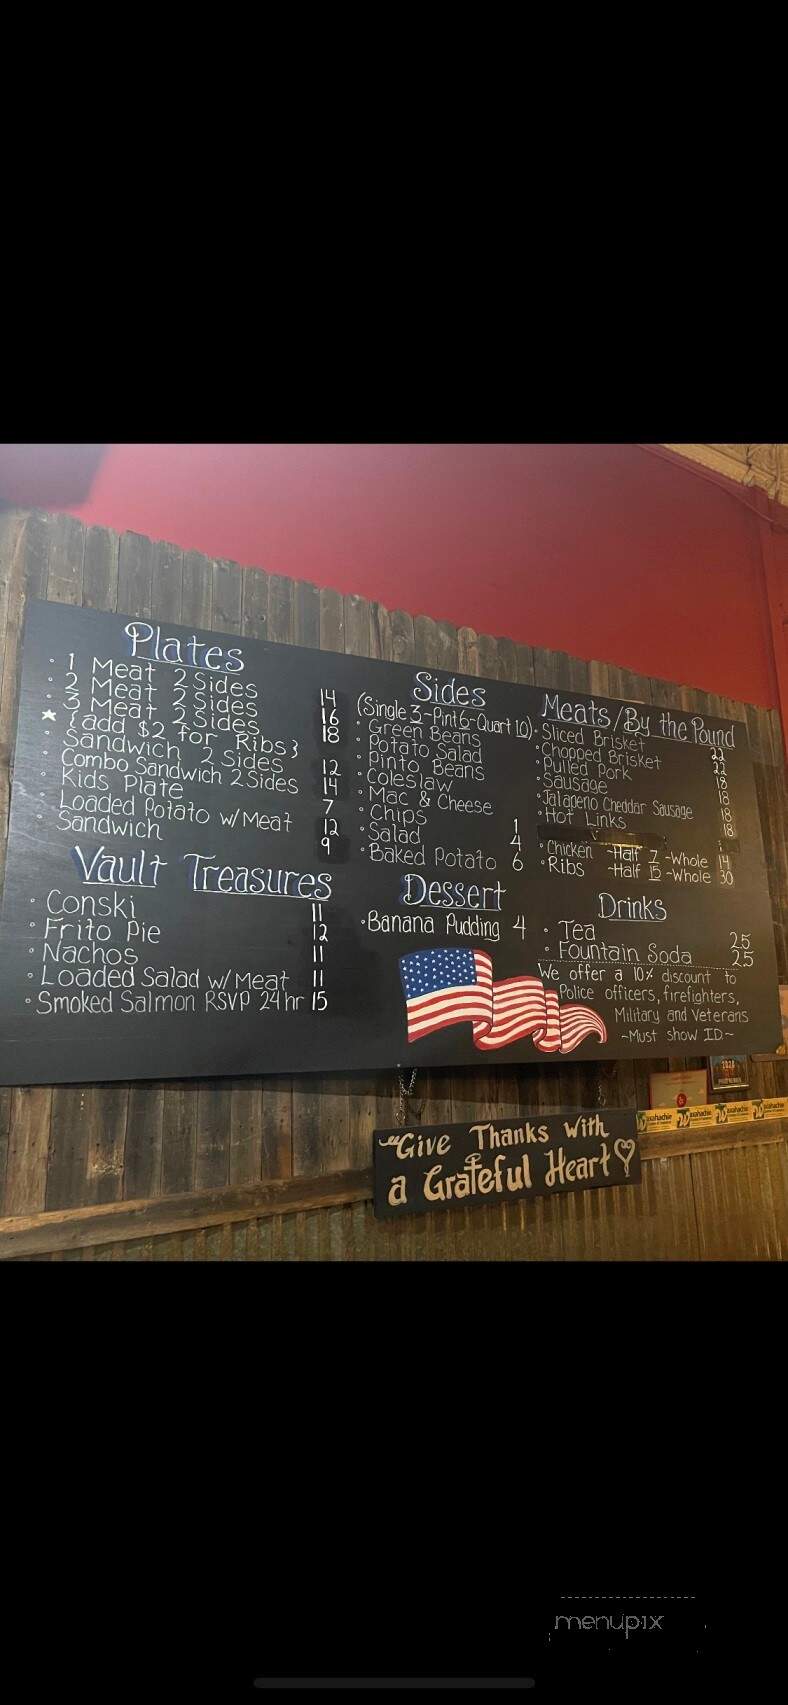 Plates
· 1 Meat 2 Sides 14
· 2 Meat 2 Sides 16
· 3 Meat 2 Sides 18
★ {add $2 for Ribs}
· Sandwich 2 Sides 12
· Combo Sandwich 2 Sides 14
· Kids Plate 7
· Loaded Potato w/Meat 12
· Sandwich 9
Vault Treasures
· Conski 11
· Frito Pie 12
· Nachos 11
· Loaded Salad w/Meat 11
· Smoked Salmon RSVP 24hr 15
Sides
(Single 3-Pint 6-Quart 10)
· Green Beans
· Potato Salad
· Pinto Beans
· Coleslaw
· Mac & Cheese
· Chips 1
· Salad 4
· Baked Potato 6
Dessert
· Banana Pudding 4
Meats/By the Pound
· Sliced Brisket 22
· Chopped Brisket 22
· Pulled Pork 18
· Sausage 18
· Jalapeno Cheddar Sausage 18
· Hot Links 18
· Chicken -Half 7 -Whole 14
· Ribs -Half 15 -Whole 30
Drinks
· Tea 2.5
· Fountain Soda 2.5
We offer a 10% discount to
Police officers, firefighters,
Military and Veterans
~Must show ID~
"Give Thanks with
a Grateful Heart
menupix